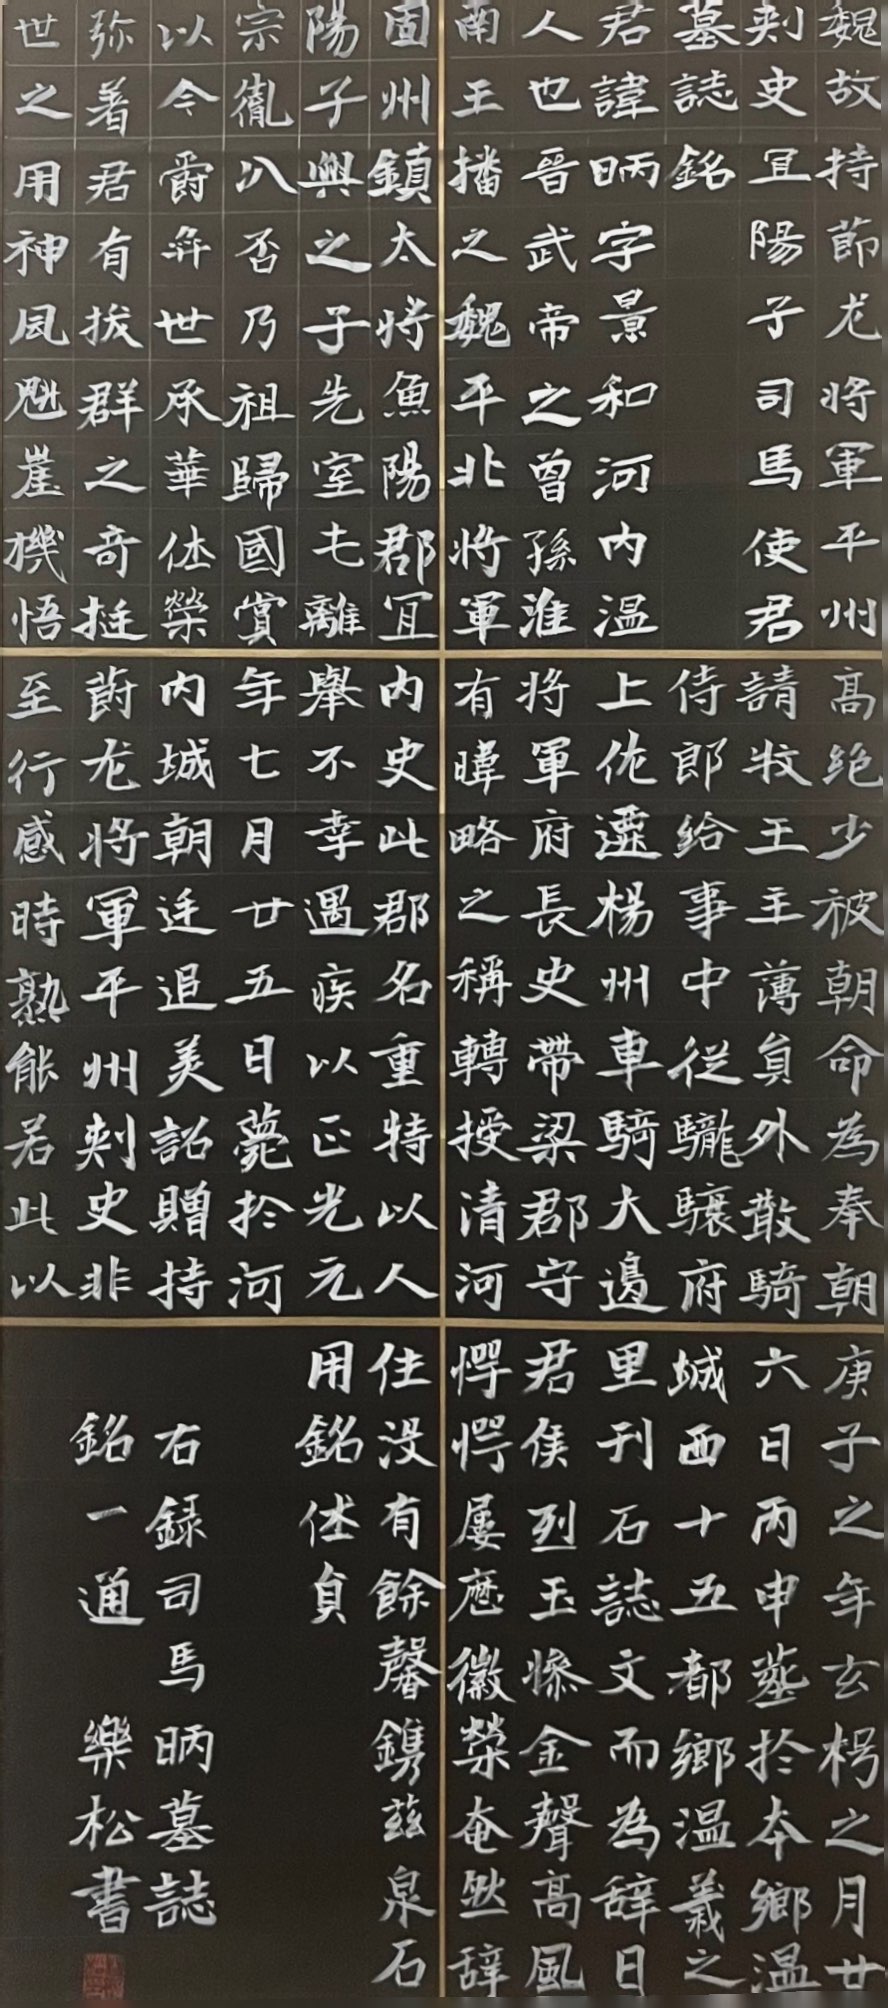 魏故持節龙将軍平州
刾史冝陽子司馬使君
墓誌銘
君諱昞字景和河内温
人也晉武帝之曾孫淮
南王播之魏平北将軍
固州鎮太将魚陽郡冝
陽子興之子先室乇離
宗胤㕣否乃祖歸國賞
以今爵弈世承華休榮
弥著君有拔群之奇挺
世之用神風魁崖機悟
高絶少被朝命為奉朝
請牧王主薄貟外散騎
侍郎給事中従驡驤府
上佐遷楊州車騎大邊
将軍府長史帶梁郡守
有暐略之稱轉授清河
内史此郡名重特以人
舉不幸遇疾以正光元
年七月廿五日薨於河
内城朝廷追美詔贈持
節龙将軍平州刾史非
至行感時熟能若此以
庚子之年玄枵之月廿
六日丙申塟於本鄉温
城西十五都鄉温義之
里刊石誌文而為辞曰
君侯烈玉㦗金聲高風
愕愕屡歴徽榮奄然辞
住没有餘馨鐫兹泉石
用銘休貞
右録司馬昞墓誌
銘一通 樂松書